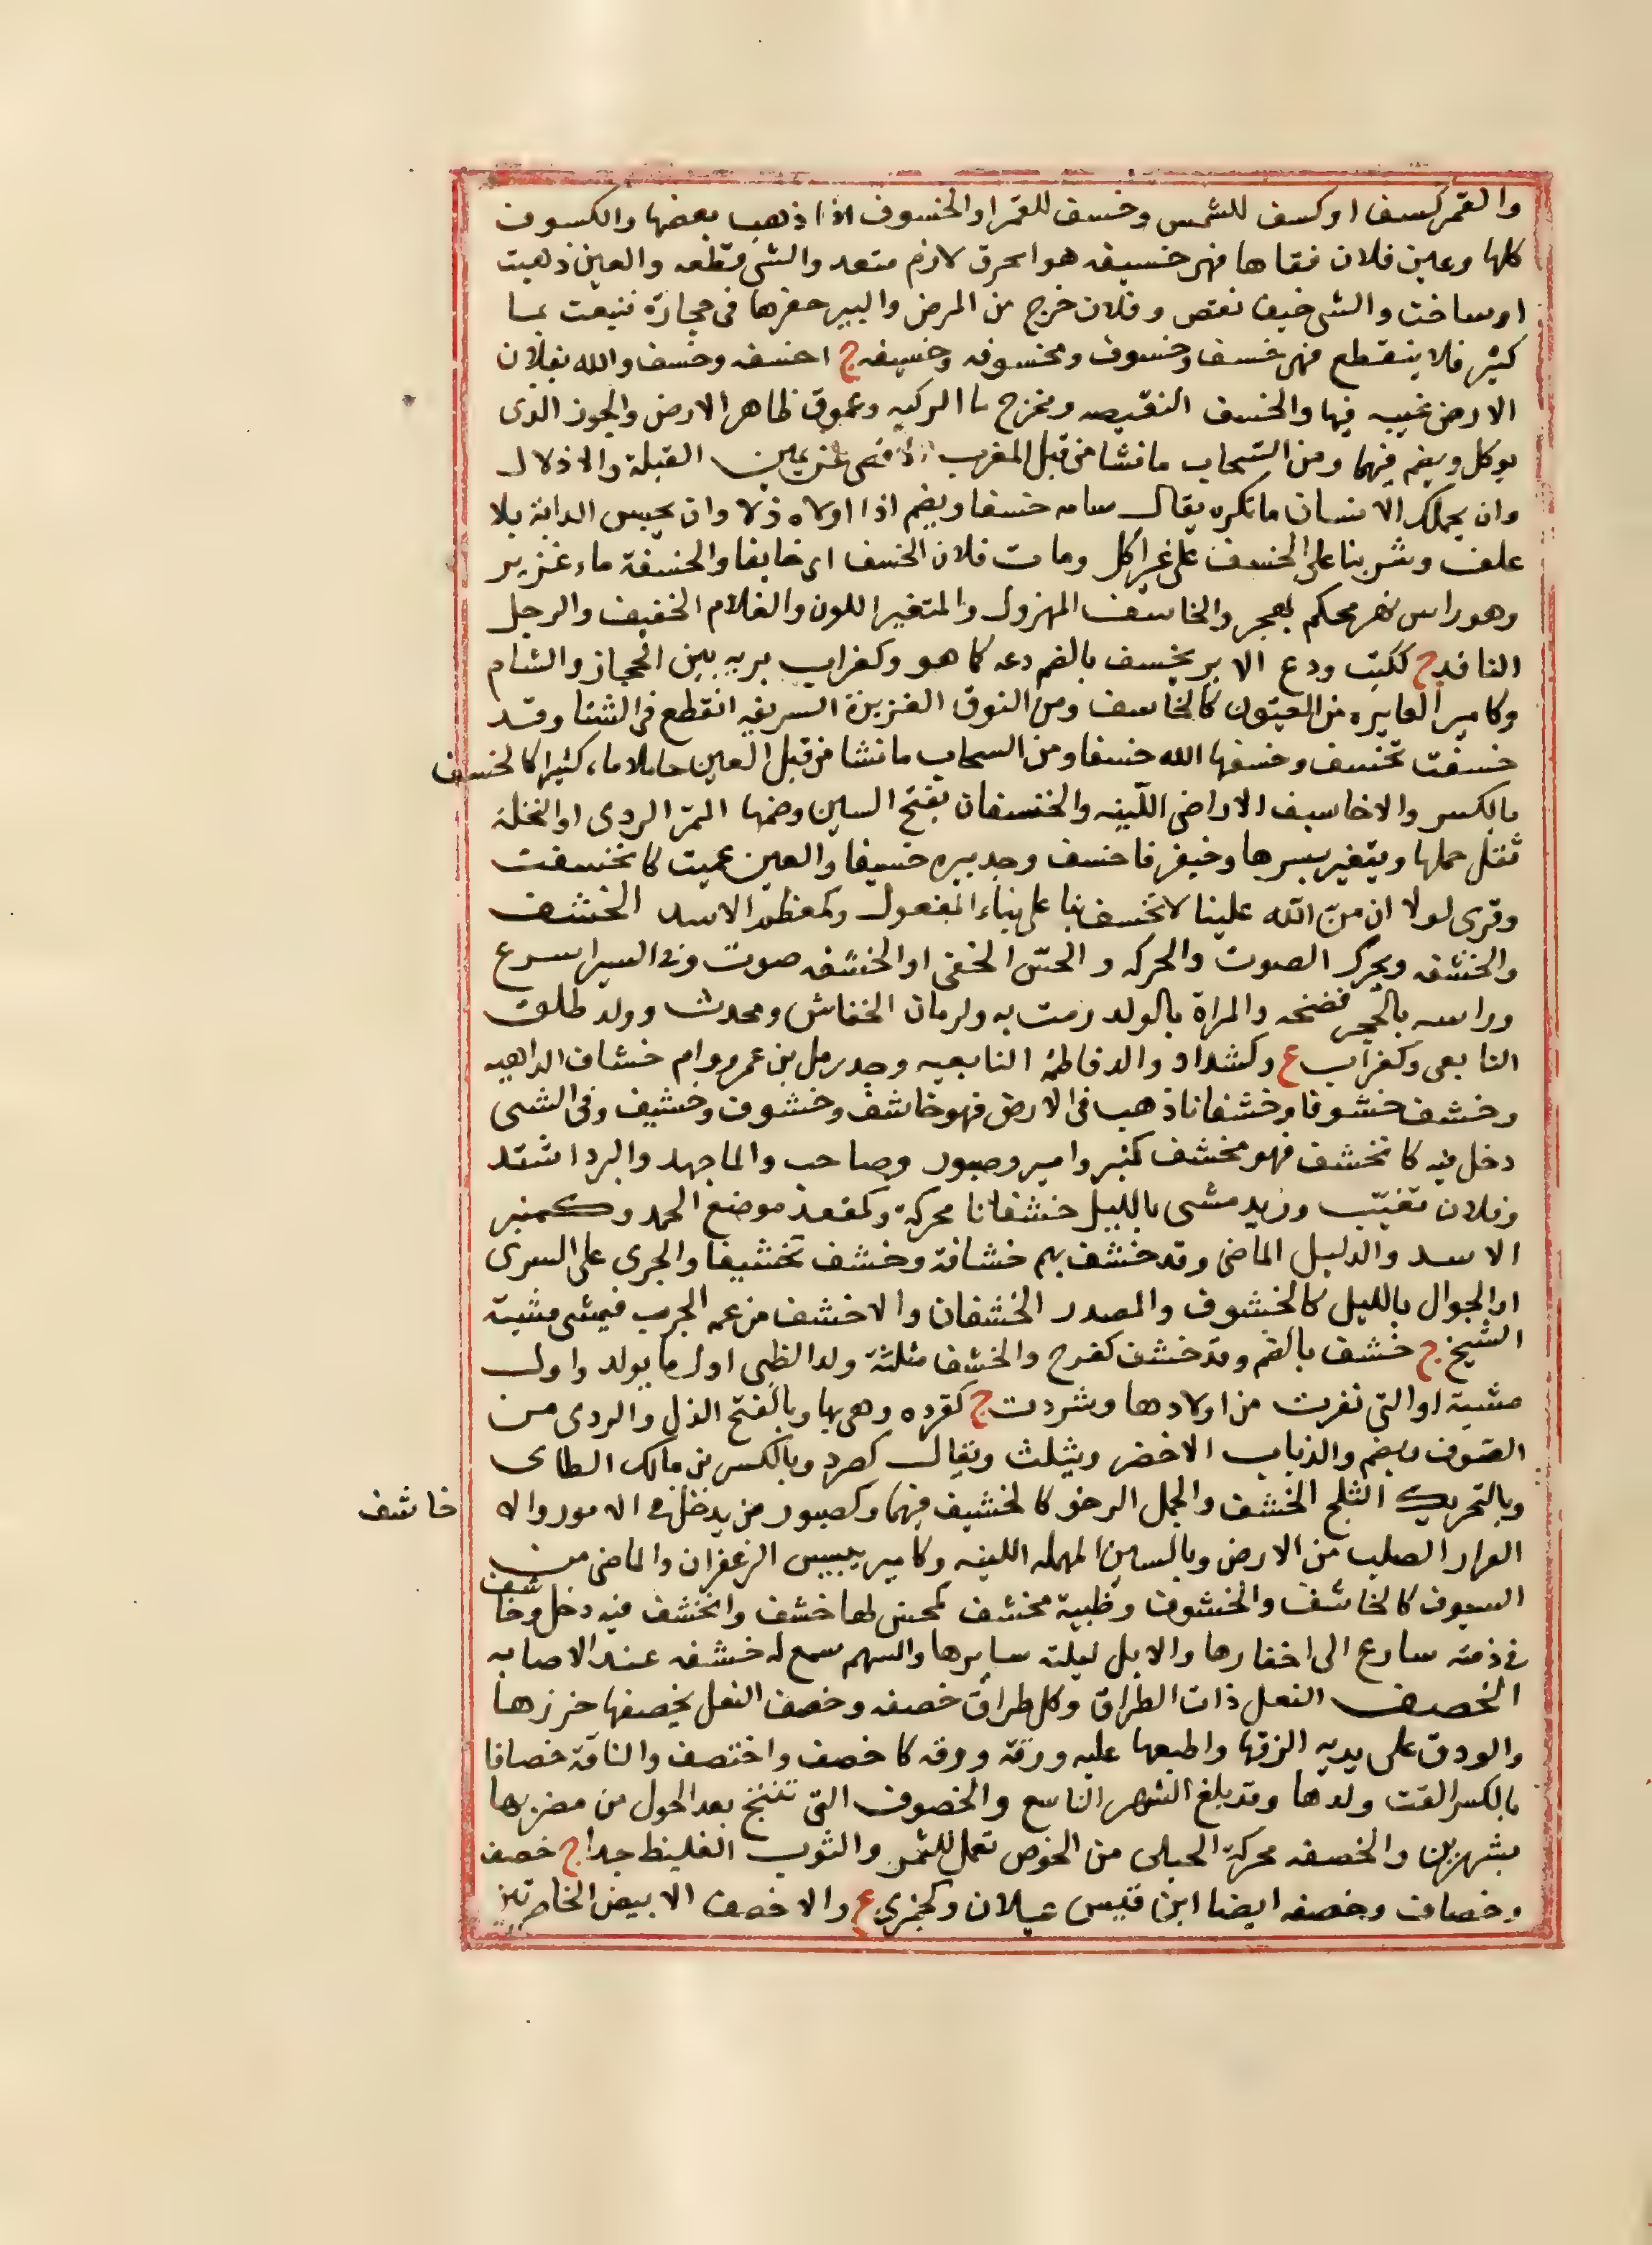 والقمر كسف او كسف للشمس وخسف للقمر او الخسوف اذا ذهب بعضها والكسوف
كلها وعين فلان فقاها فهى خسيفه هو انخرق لازم متعد والشى قطعه والعين ذهبت
او ساخت والشى خيفا نقص وفلان خرج من المرض والبير حفرها فى حجارة فنبعت بما
كثير فلا ينقطع فهى خسف وخسوف ومخسوفه وخسيفه ج اخسفه وخسف والله بفلان
الارض غيبه فيها والخسف النقيصه ومخرج ما الركيه وعموق ظاهر الارض والجوز الذى
يوكل ويضم فيهما ومن السحاب مانشا من قبل المغرب الاقصى عن يمين القبلة والاذلال
وان يحملك الانسان ماتكره يقال سامه خسفا ويضم اذا اولاه ذلا وان يحبس الدابة بلا
علف وشربنا على الخسف على غير اكل ومات فلان الخسف اى خايفا والخسفة ماء غزير
وهو راس نهر محكم بهجر والخاسف المهزول والمتغير اللون والغلام الخفيف والرجل
الناقه ج ككتب ودع الامر يخسف بالضم دعه كما هو وكغراب بريه بين الحجاز والشام
وكامير الغايره من العيون كالخاسف ومن النوق الغزيرة السريعه انقطع فى الشتا وقد
خسفت تخسف وخسفها الله خسفا ومن السحاب مانشا من قبل العين حاملا ماء كثيرا كالخسف
بالكسر والاخاسيف الاراضى اللينه والخسفان بفتح السين وضمها التمر الردى او النخلة
تقل حملها ويتغير بسرها وخيفر فا خسف وجد بيره خسيفا والعين عميت كانخسفت
وقرى لولا ان من الله علينا لانخسف بنا على بناء المفعول وكمعظم الاسد الخشف
والخشفه ويحرك الصوت والحركه والحس الخفى او الخشفه صوت وفى السير اسرع
وراسه بالحجر فضخه والمراة بالولد رمت به ولرمان الخفاش ومحدث وولد طلق
التابعى وكغراب ع وكشداد والد فاطمة التابعيه وجد رمل بن عمرو وام خشاف الداهيه
وخشف خشوفا وخشفانا ذهب فى الارض فهو خاشف وخشوف وخشيف وفى الشى
دخل فيه كانخشف فهو مخشف كمنبر وامير وصبور وصاحب والماجهد والبرد اشتد
وفلان تغيب وزيد مشى بالليل خشفانا محركة وكمقعد موضع الجمد وكمنبر
الاسد والدليل الماضى وقد خشف بهم خشافة وخشف تخشيفا والجرى على السرى
او الجوال بالليل كالخشوف والمصدر الخشفان والاخشف من عمه الجرب فيمشى مشية
الشيخ ج خشف بالضم وقد خشف كفرح والخشف مثلثة ولد الظبى اول ما يولد واول
مشية او التى نفرت من اولادها وشردت ج كقرده وهى بها وبالفتح الذل والردى من
الصوف ويضم والذباب الاخضر ويثلث ويقال كصرد وبالكسر بن مالك الطاى
وبالتحريك الثلج الخشف والجمل الرخو كالخشيف فيهما وكصبور من يدخل فى الامور والا خاشف
العرار الصلب من الارض وبالسين المهمله اللينه وكامير يبيس الزعفران والماضى من
السيوف كالخاشف والخشوف وظبية مخشف كمحسن لها خشف وانخشف فيه دخل وخاشف
فى ذمته سارع الى اخفارها والابل ليلته سايرها والسهم سمع له خشفه عند الاصابه
الخصف النعل ذات الطراق وكل طراق خصفه وخصف النعل يخصفها خرزها
والورق على بدنه الزقها واطبعها عليه ورقة ورقه كاخصف واختصف والناقة خصافا
بالكسر القت ولدها وقد بلغ الشهر التاسع والخصوف التى تنتج بعد الحول من مضربها
بشهرين والخصفه محركة الجله من الخوص تعمل للتمر والثوب الغليظ جدا ج خصف
وخصاف وخصفه ايضا ابن قيس عيلان وكجمزى ع والاخصف الابيض الخاصرتين